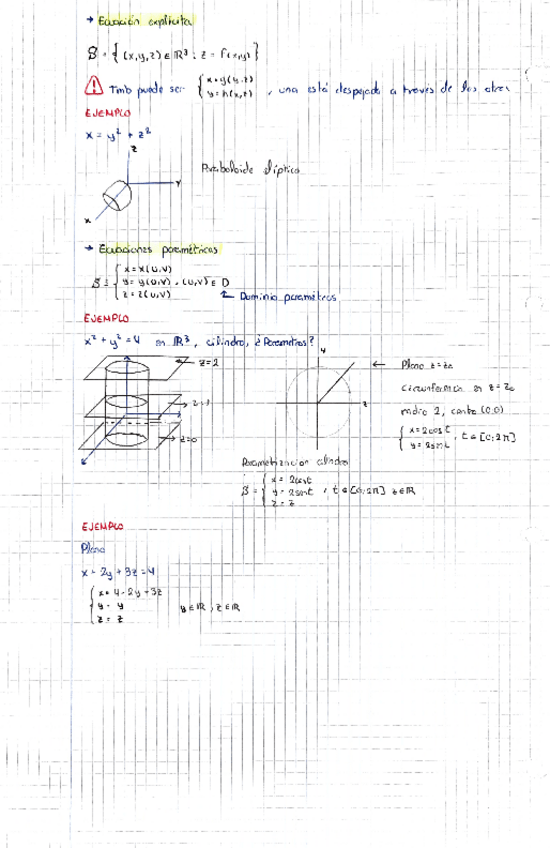 → Ecuación explícita
S = { (x,y,z) ∈ ℝ³ : z = f(x,y) }
⚠ Tmb puede ser { x = g(y,z)
y = h(x,z) , una está despejada a través de las otras
EJEMPLO
x = y² + z²
z
y
x
Paraboloide elíptico
→ Ecuaciones paramétricas
S = { x = x(u,v)
y = y(u,v) , (u,v) ∈ D
z = z(u,v)
Dominio parámetros
EJEMPLO
x² + y² = 4 en ℝ³, cilindro, ¿Parametros?
z=2
z=1
z=0
Plano z = z₀
circunferencia en z = z₀
radio 2, centro (0,0)
{ x = 2cos t
y = 2sen t , t ∈ [0, 2π]
Parametrización cilindro
S = { x = 2cos t
y = 2sen t , t ∈ [0, 2π] z ∈ ℝ
z = z
EJEMPLO
Plano
x - 2y + 3z = 4
{ x = 4 - 2y + 3z
y = y
z = z
y ∈ ℝ, z ∈ ℝ